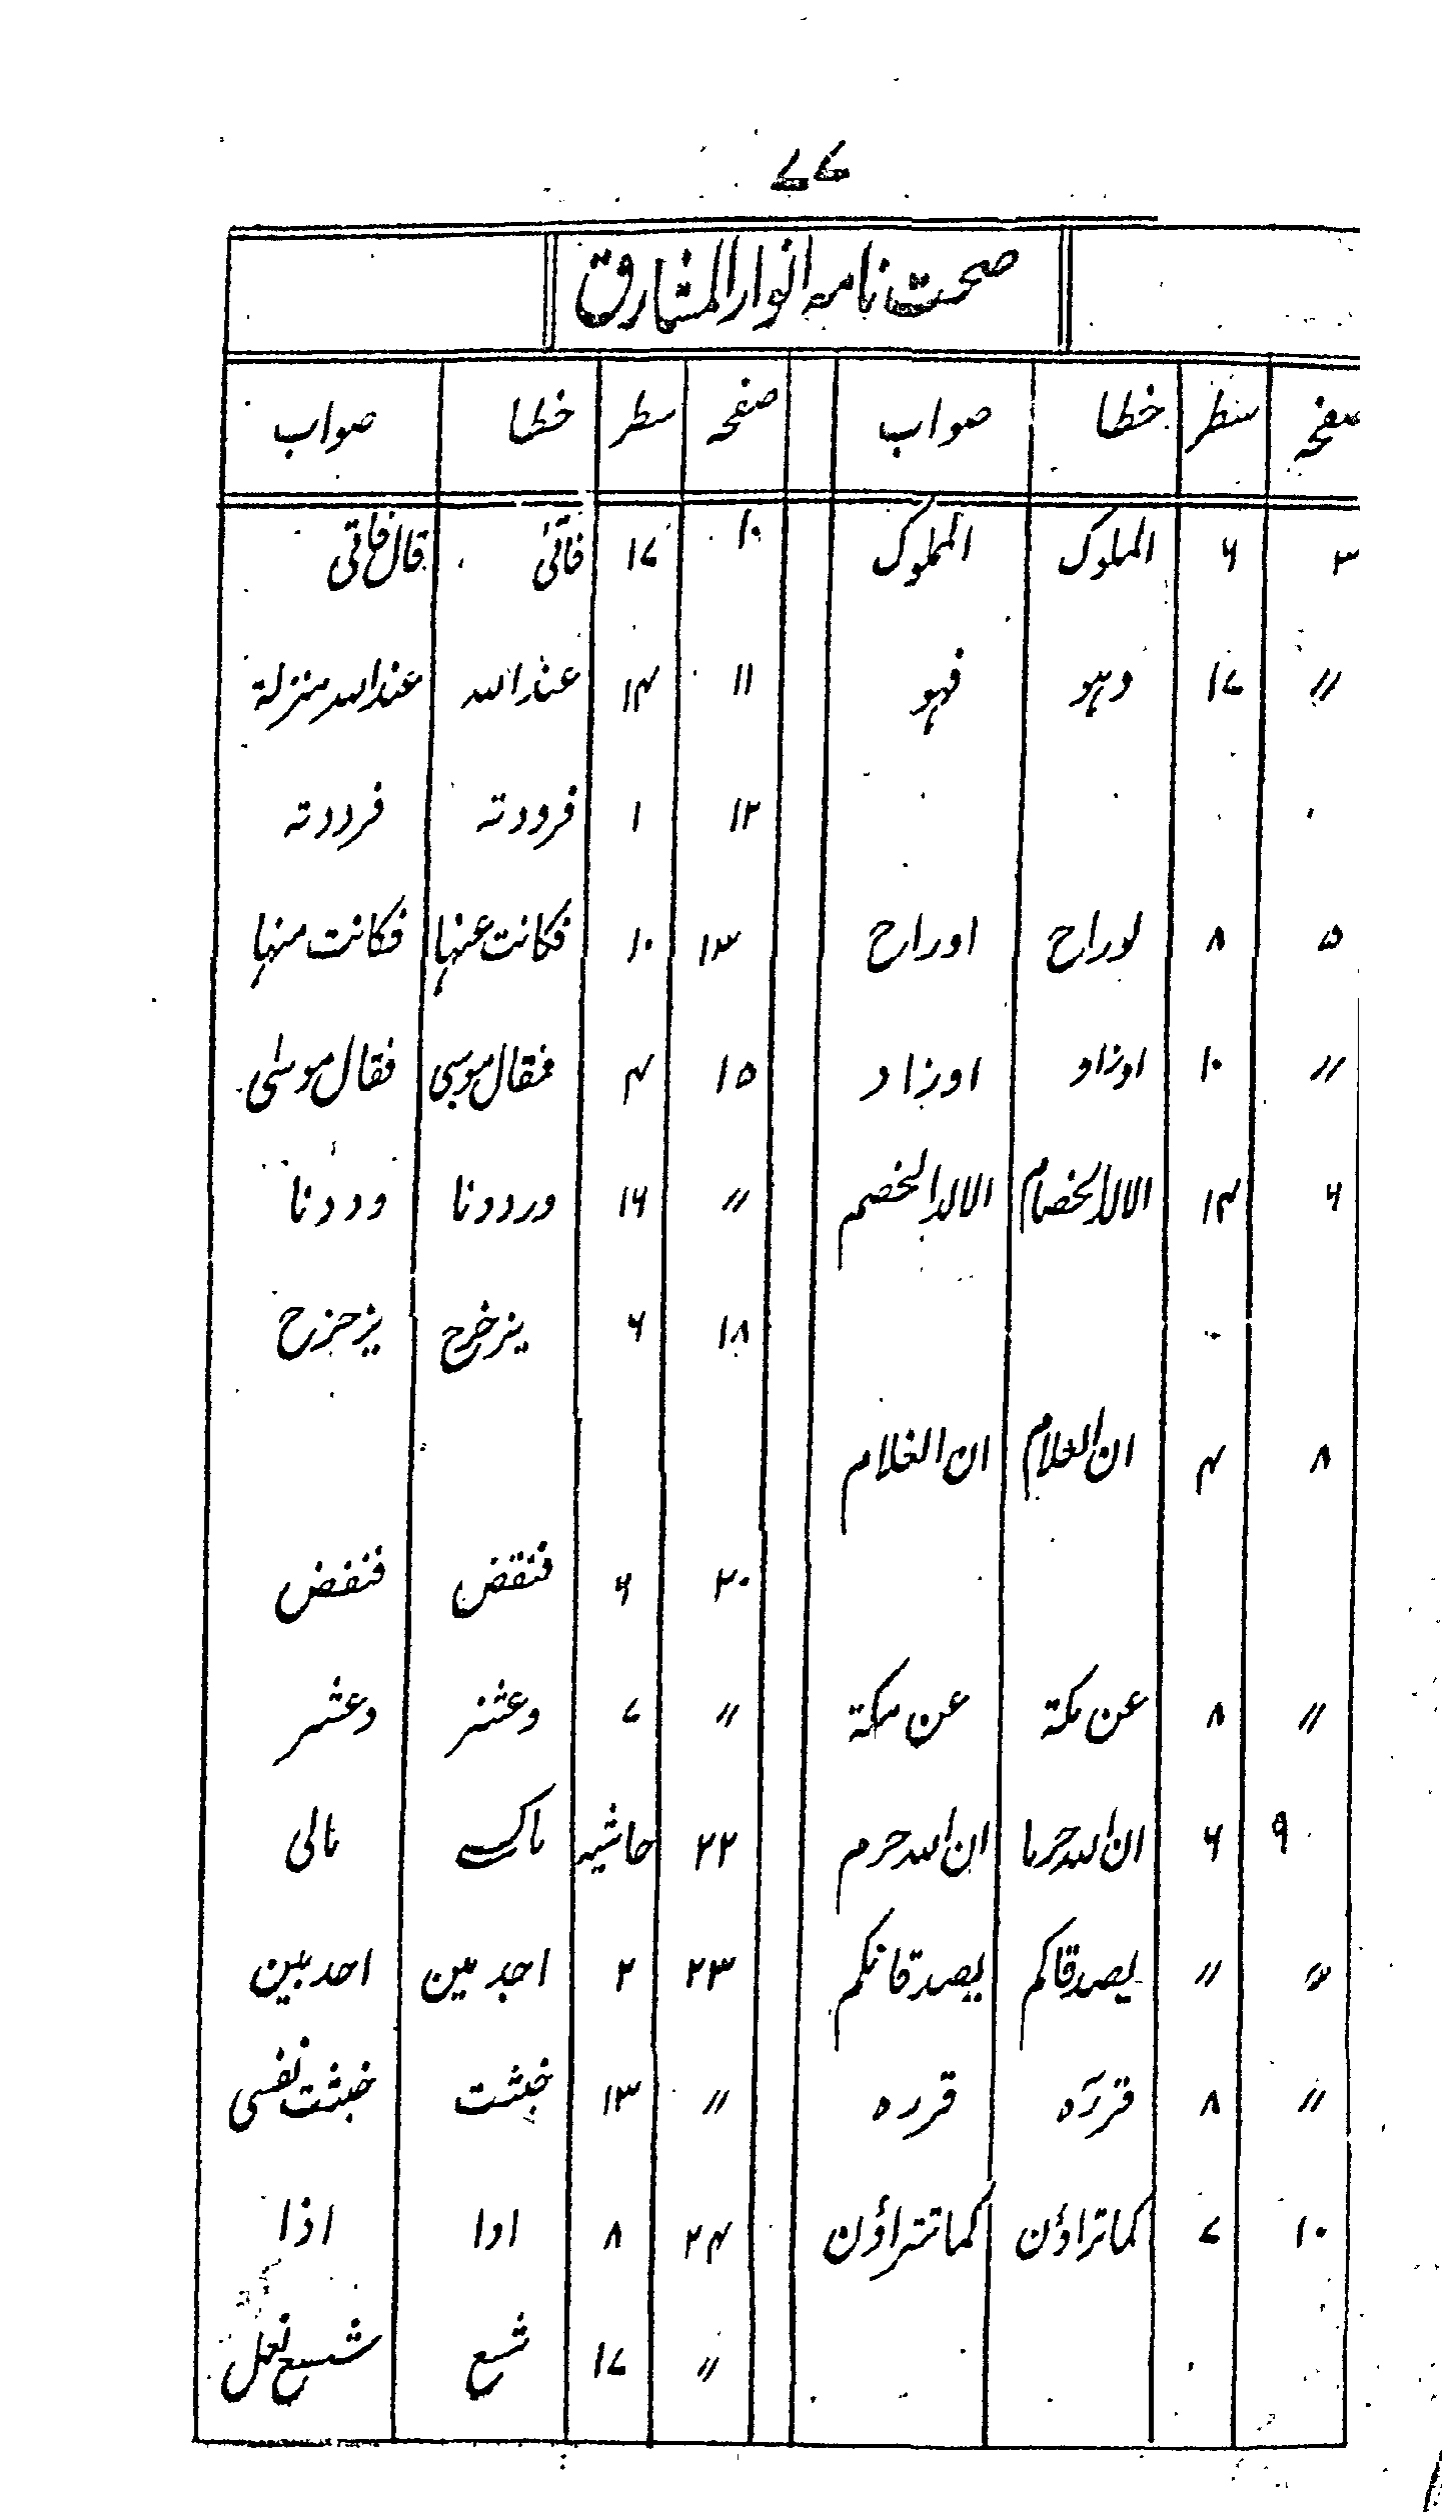 ۷۷
صحت نامہ انوار المشارق
صفحہ سطر خطا صواب صفحہ سطر خطا صواب
۳ ۶ الملوک المملوک ۱۰ ۱۷ فاتی قال فاتی
〃 ۱۷ وہو فہو ۱۱ ۱۴ عند اللہ عند اللہ منزلۃ
۱۲ ۱ فرودتہ فرددتہ
۵ ۸ لوراح اوراح ۱۳ ۱۰ فکانت عنہا فکانت منہا
〃 ۱۰ اوزاد اوزاد ۱۵ ۴ فقال موسی فقال موسٰی
۶ ۱۴ الالد الخصام الالد الخصم 〃 ۱۶ ورددنا وددنا
۱۸ ۶ یزخرج یزحزح
۸ ۴ ان العلام ان الغلام
۲۰ ۶ فنقض فنفض
〃 ۸ عن مکۃ عن مکۃ 〃 ۷ وعثنر وعثمر
۹ ۶ ان اللہ حرما ان اللہ حرم ۲۲ حاشیہ مالی
〃 〃 یصدقاکم یصدقانکم ۲۳ ۲ احد مین احد بین
〃 ۸ قررَہ قررہ 〃 ۱۳ خبثت خبثت نفسی
۱۰ ۷ کما تراؤن کما تتراؤن ۲۴ ۸ ادا اذا
〃 ۱۷ شسع شسع نعل